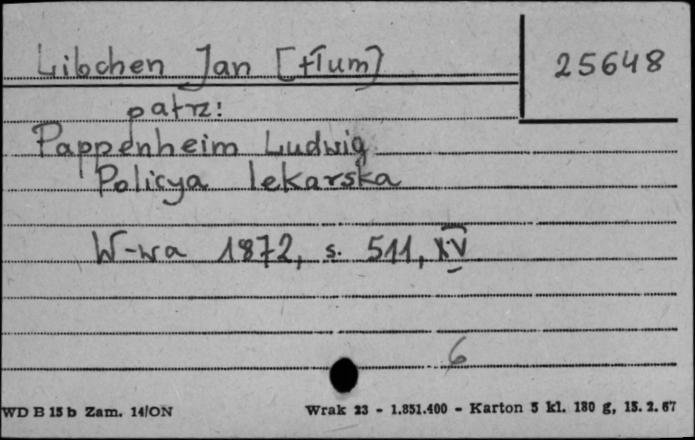 Libchen Jan [tłum]
25648
patrz:
Pappenheim Ludwig
Policya lekarska
W-wa 1872, s. 511, XV
6
WD B 15 b Zam. 14/ON
Wrak 23 - 1.851.400 - Karton 5 kl. 180 g, 15. 2. 67